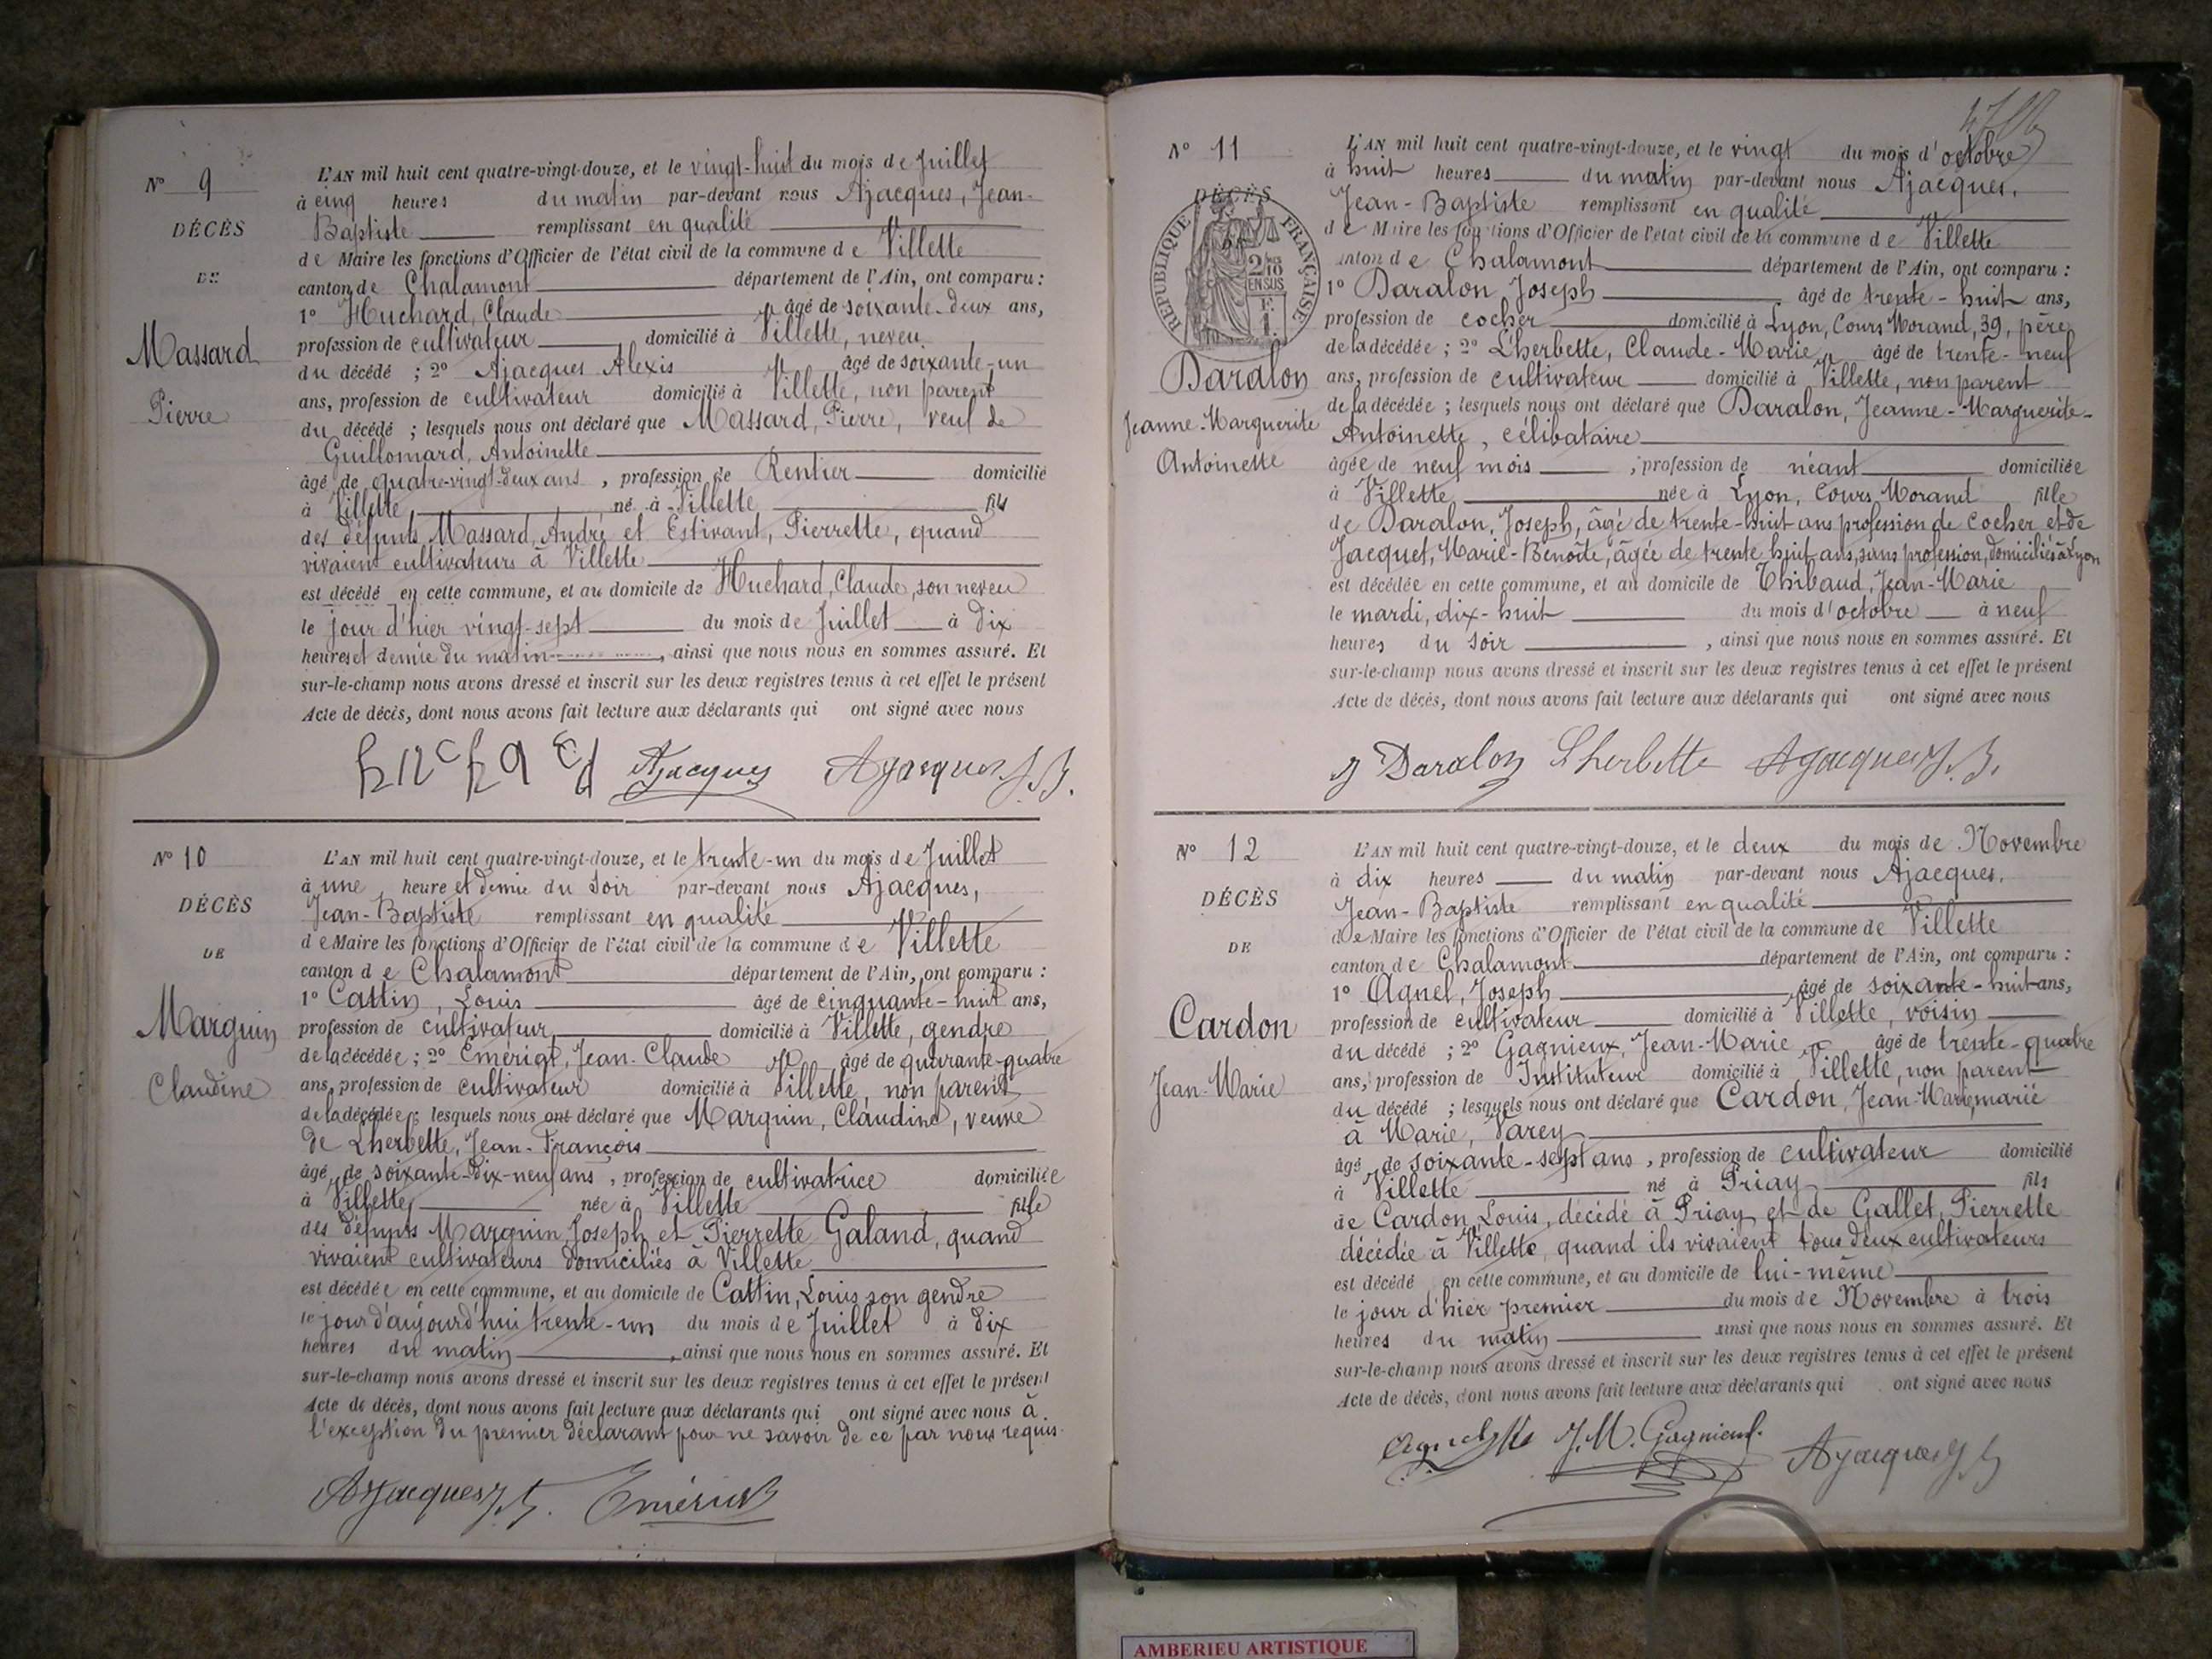 N° 9
DÉCÈS
DE
Massard
Pierre
L'AN mil huit cent quatre-vingt-douze, et le vingt-huit du mois de Juillet
à cinq heures du matin par-devant nous Ajacques, Jean-
Baptiste remplissant en qualité
de Maire les fonctions d'Officier de l'état civil de la commune de Villette
canton de Chalamont département de l'Ain, ont comparu :
1° Huchard, Claude âgé de soixante-deux ans,
profession de cultivateur, domicilié à Villette, neveu
du décédé ; 2° Ajacques Alexis âgé de soixante-un
ans, profession de cultivateur domicilié à Villette, non parent
du décédé ; lesquels nous ont déclaré que Massard, Pierre, veuf de
Guillomard, Antoinette
âgé de quatre-vingt-deux ans, profession de Rentier domicilié
à Villette, né à Villette fils
des défunts Massard, André et Estivant, Pierrette, quand
vivaient cultivateurs à Villette
est décédé en cette commune, et au domicile de Huchard, Claude, son neveu
le jour d'hier vingt-sept du mois de Juillet à dix
heures et demie du matin, ainsi que nous nous en sommes assuré. Et
sur-le-champ nous avons dressé et inscrit sur les deux registres tenus à cet effet le présent
Acte de décès, dont nous avons fait lecture aux déclarants qui ont signé avec nous
Ajacques Ajacques J. B.
N° 10
DÉCÈS
DE
Marguin
Claudine
L'AN mil huit cent quatre-vingt-douze, et le trente-un du mois de Juillet
à une heure et demie du soir par-devant nous Ajacques,
Jean-Baptiste remplissant en qualité
de Maire les fonctions d'Officier de l'état civil de la commune de Villette
canton de Chalamont département de l'Ain, ont comparu :
1° Cattin, Louis âgé de cinquante-huit ans,
profession de cultivateur, domicilié à Villette, gendre
de la décédée ; 2° Emérigt, Jean-Claude âgé de quarante-quatre
ans, profession de cultivateur domicilié à Villette, non parent
de la décédée ; lesquels nous ont déclaré que Marguin, Claudine, veuve
de Lherbette, Jean-François
âgé de soixante-dix-neuf ans, profession de cultivatrice domiciliée
à Villette, née à Villette fille
des défunts Marguin Joseph et Pierrette Galand, quand
vivaient cultivateurs domiciliés à Villette
est décédée en cette commune, et au domicile de Cattin, Louis son gendre
le jour d'aujourd'hui trente-un du mois de Juillet à dix
heures du matin, ainsi que nous nous en sommes assuré. Et
sur-le-champ nous avons dressé et inscrit sur les deux registres tenus à cet effet le présent
Acte de décès, dont nous avons fait lecture aux déclarants qui ont signé avec nous à
l'exception du premier déclarant pour ne savoir de ce par nous requis.
Ajacques J. B.
N° 11
DÉCÈS
RÉPUBLIQUE FRANÇAISE
2/10 EN SUS
Daralon
Jeanne-Marguerite
Antoinette
L'AN mil huit cent quatre-vingt-douze, et le vingt du mois d'octobre
à huit heures du matin par-devant nous Ajacques,
Jean-Baptiste remplissant en qualité
de Maire les fonctions d'Officier de l'état civil de la commune de Villette
canton de Chalamont département de l'Ain, ont comparu :
1° Daralon Joseph, âgé de trente-huit ans,
profession de cocher domicilié à Lyon, Cours Morand, 39, père
de la décédée ; 2° Lherbette, Claude-Marie âgé de trente-neuf
ans, profession de cultivateur domicilié à Villette, non parent
de la décédée ; lesquels nous ont déclaré que Daralon, Jeanne-Marguerite-
Antoinette, célibataire
âgée de neuf mois, profession de néant domiciliée
à Villette, née à Lyon, Cours Morand fille
de Daralon, Joseph, âgé de trente-huit ans profession de cocher et de
Jacquet, Marie-Benoîte, âgée de trente huit ans, sans profession, domiciliés à Lyon
est décédée en cette commune, et au domicile de Thibaud, Jean-Marie
le mardi, dix-huit du mois d'octobre à neuf
heures du soir, ainsi que nous nous en sommes assuré. Et
sur-le-champ nous avons dressé et inscrit sur les deux registres tenus à cet effet le présent
Acte de décès, dont nous avons fait lecture aux déclarants qui ont signé avec nous
J Daralon Lherbette Ajacques J. B.
N° 12
DÉCÈS
DE
Cardon
Jean-Marie
L'AN mil huit cent quatre-vingt-douze, et le deux du mois de Novembre
à dix heures du matin par-devant nous Ajacques,
Jean-Baptiste remplissant en qualité
de Maire les fonctions d'Officier de l'état civil de la commune de Villette
canton de Chalamont département de l'Ain, ont comparu :
1° Agnel, Joseph, âgé de soixante-huit ans,
profession de cultivateur domicilié à Villette, voisin
du décédé ; 2° Gagnieux, Jean-Marie âgé de trente-quatre
ans, profession de Instituteur domicilié à Villette, non parent
du décédé ; lesquels nous ont déclaré que Cardon, Jean-Marie, marié
à Marie, Varey
âgé de soixante-sept ans, profession de cultivateur domicilié
à Villette né à Priay fils
de Cardon, Louis, décédé à Priay et de Gallet, Pierrette
décédée à Villette, quand ils vivaient tous deux cultivateurs
est décédé en cette commune, et au domicile de lui-même
le jour d'hier premier du mois de Novembre à trois
heures du matin ainsi que nous nous en sommes assuré. Et
sur-le-champ nous avons dressé et inscrit sur les deux registres tenus à cet effet le présent
Acte de décès, dont nous avons fait lecture aux déclarants qui ont signé avec nous
J. M. Gagnieux Ajacques J B
AMBERIEU ARTISTIQUE